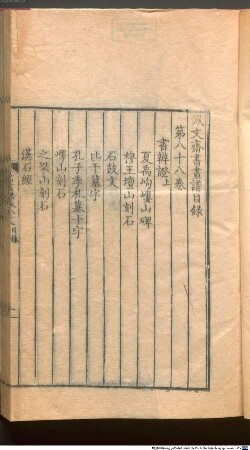 佩文齋書畫譜目錄
第八十八卷
書辨證上
夏禹岣嶁山碑
穆王壇山刻石
石鼓文
比干墓字
孔子季札墓十字
嶧山刻石
之罘山刻石
漢石經